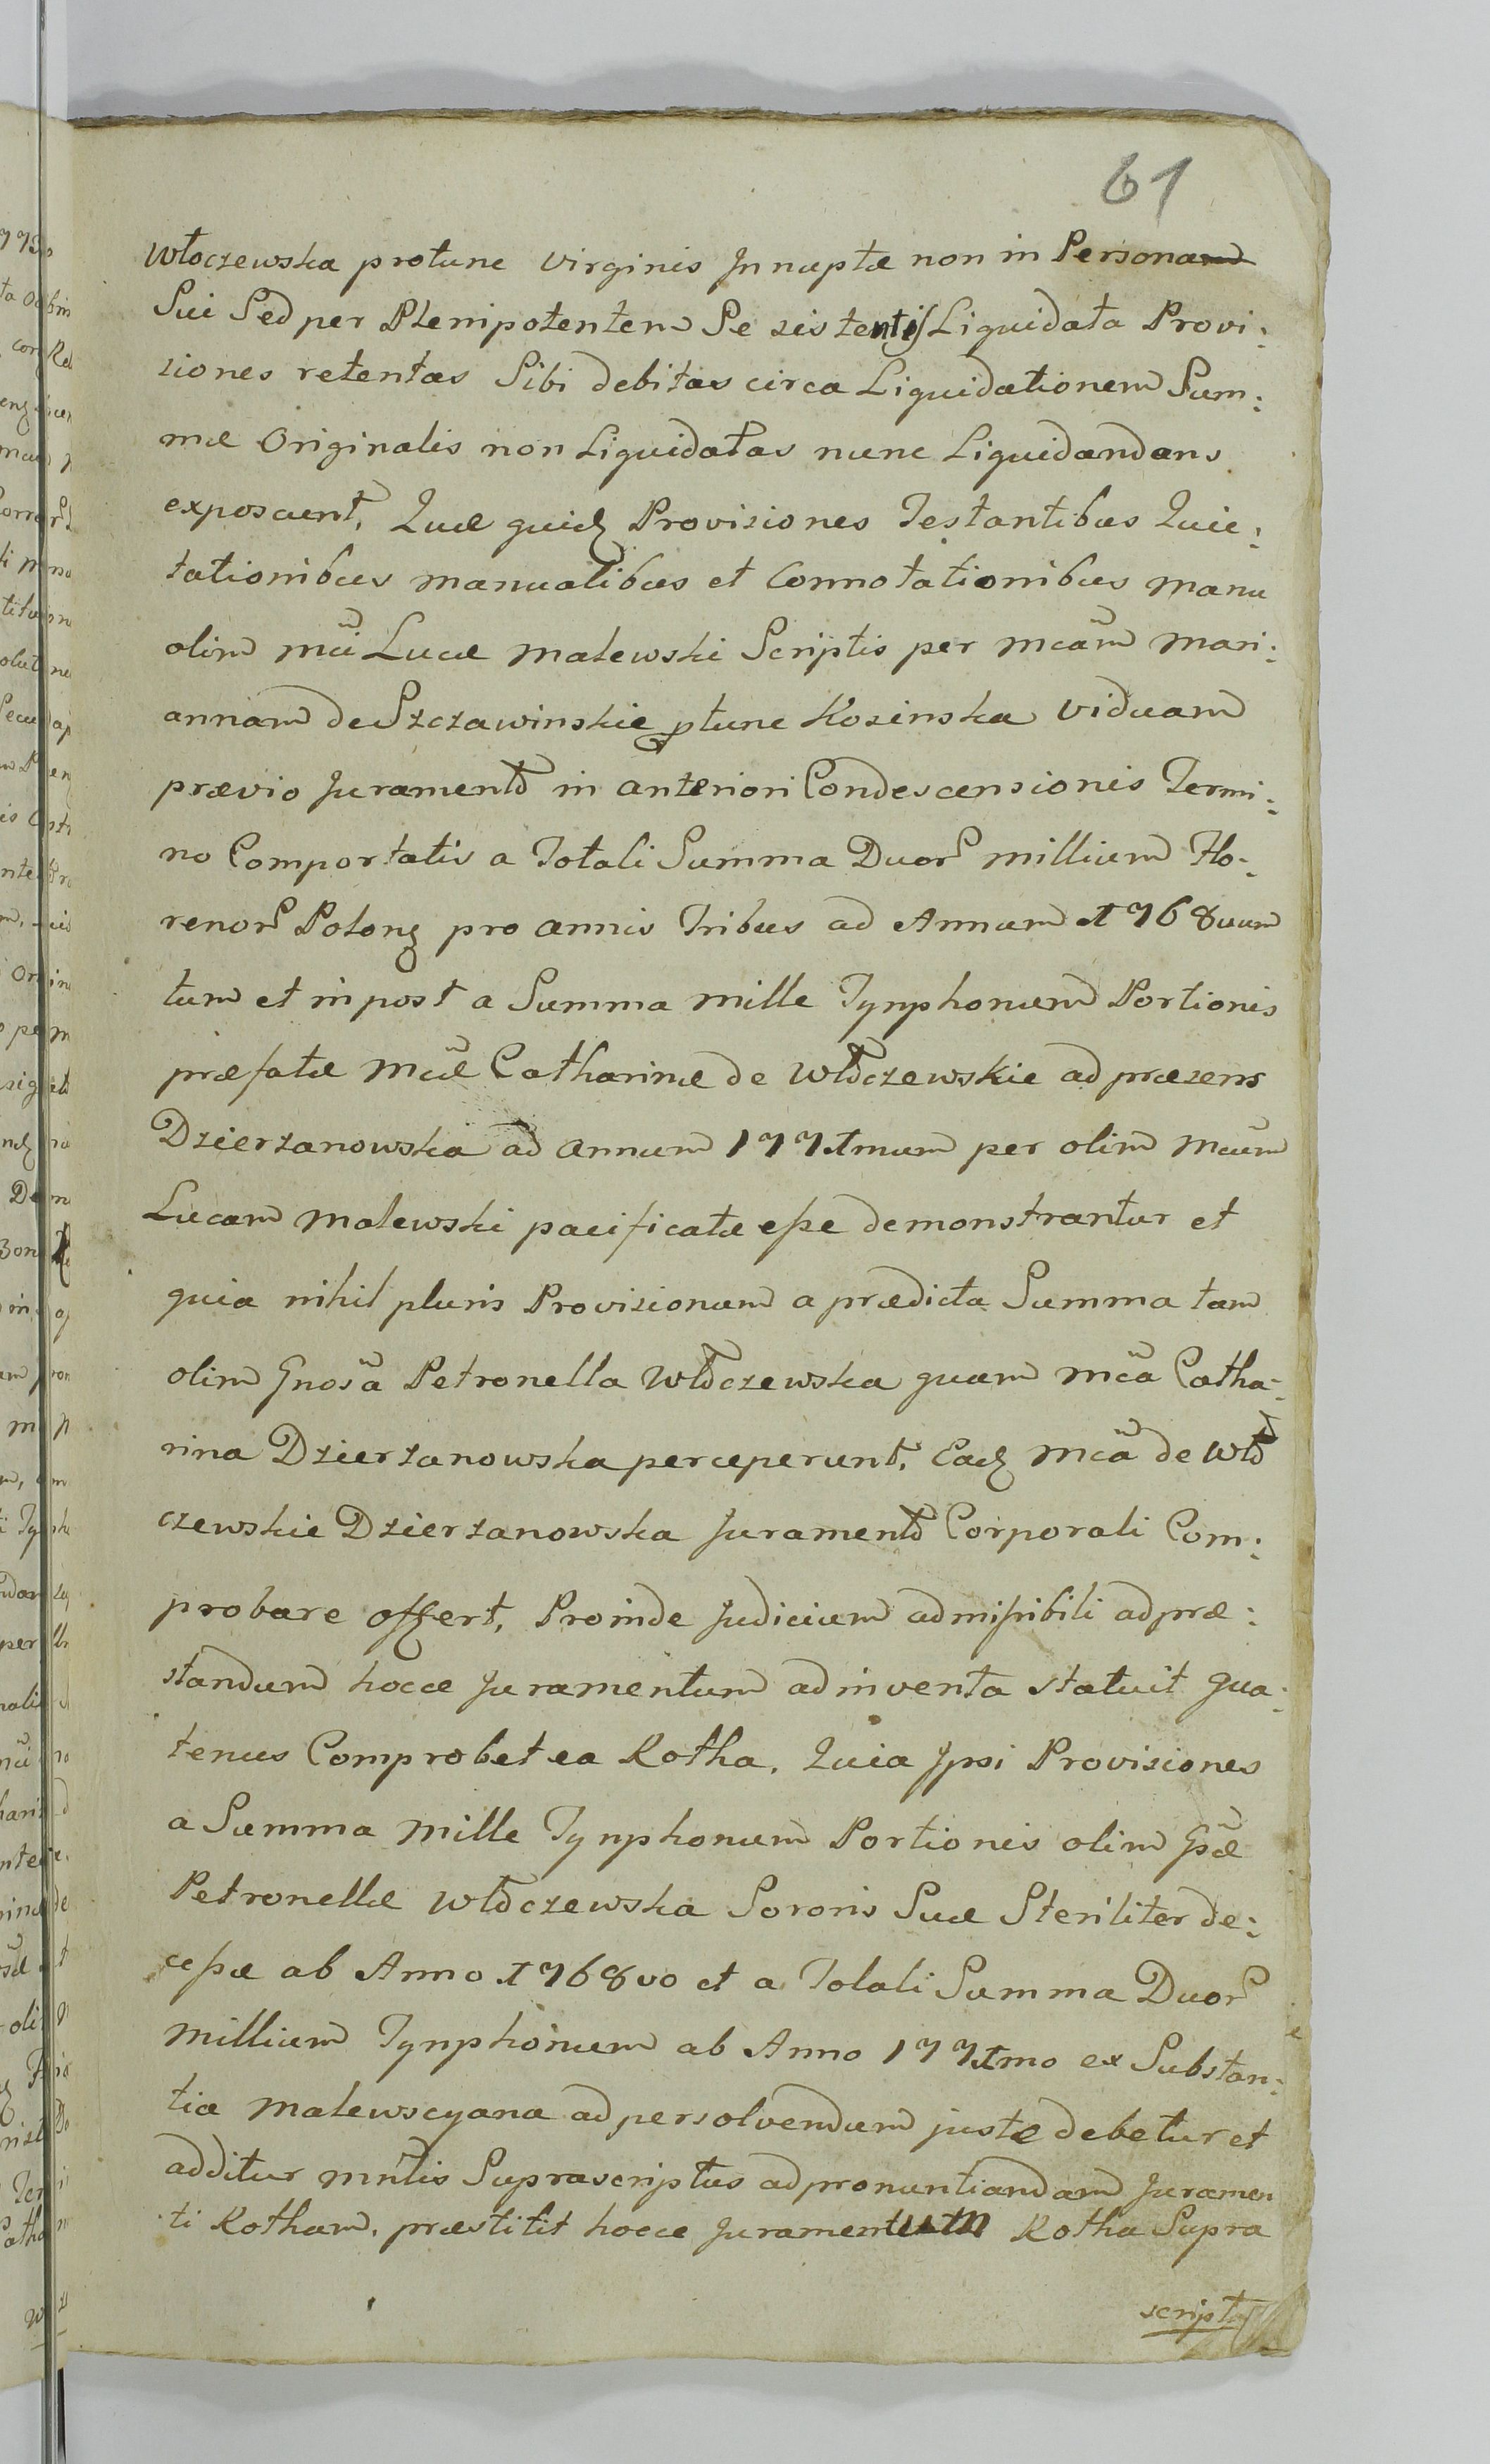 61
Włoczewska protunc Virginis Innuptæ non in Persona
Sui Sed per Plenipotentem Se sistentis Liquidata Provi:
siones retentas Sibi debitas circa Liquidationem Sum:
mæ Originalis non Liquidatas nunc Liquidandans
exposcunt, Quæ quid Provisiones Testantibus Quie:
tationibus manualibus et Connotationibus manu
olim mci Lucæ Malewski Scriptis per mcam Mari:
annam de Szczawinskie ptunc Kosinska Viduam
prævio Juramento in anteriori Condescensionis Termi:
no Comportatis a Totali Summa Duor millium Flo:
renor Polon pro annis Tribus ad Annum 1768vum
tum et in post a Summa mille Tynphonum Portionis
præfatæ Mcæ Catharinæ de Włoczewskie ad præsens
Dzierzanowska ad annum 1771mum per olim Mcum
Lucam Malewski pacificatæ esse demonstrantur et
quia nihil pluris Provisionum a prædicta Summa tam
olim Gnosa Petronella Włoczewska quam Mca Catha:
rina Dzierzanowska perceperunt, Ead Mca de Wło
czewskie Dzierzanowska Juramento Corporali Com:
probare offert, Proinde Judicium admissibili ad præ:
standum hocce Juramentum adinventa statuit qua:
tenus Comprobet ea Rotha. Quia Ipsi Provisiones
a Summa Mille Tynphonum Portionis olim Gsæ
Petronellæ Włoczewska Sororis Suæ Steriliter de:
cessæ ab Anno 1768vo et a Totali Summa Duor
Millium Tynphonum ab Anno 1771mo ex Substan:
tia Malewscyana ad persolvendum juste debetur et
additur mntis Suprascriptus ad pronuntiandam Juramen
ti Rotham, præstitit hocce Juramentum Rotha Supra
scripta